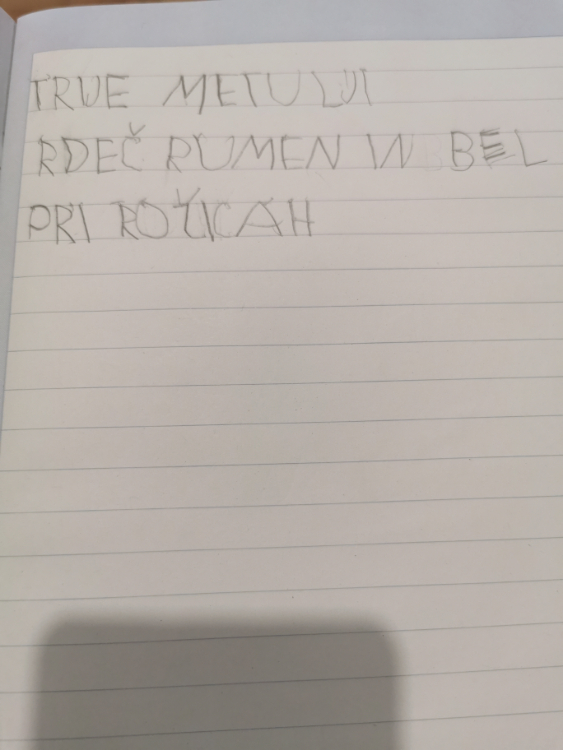 TRUE METULJI
RDEČ RUMEN IN BEL
PRI ROŽICAH